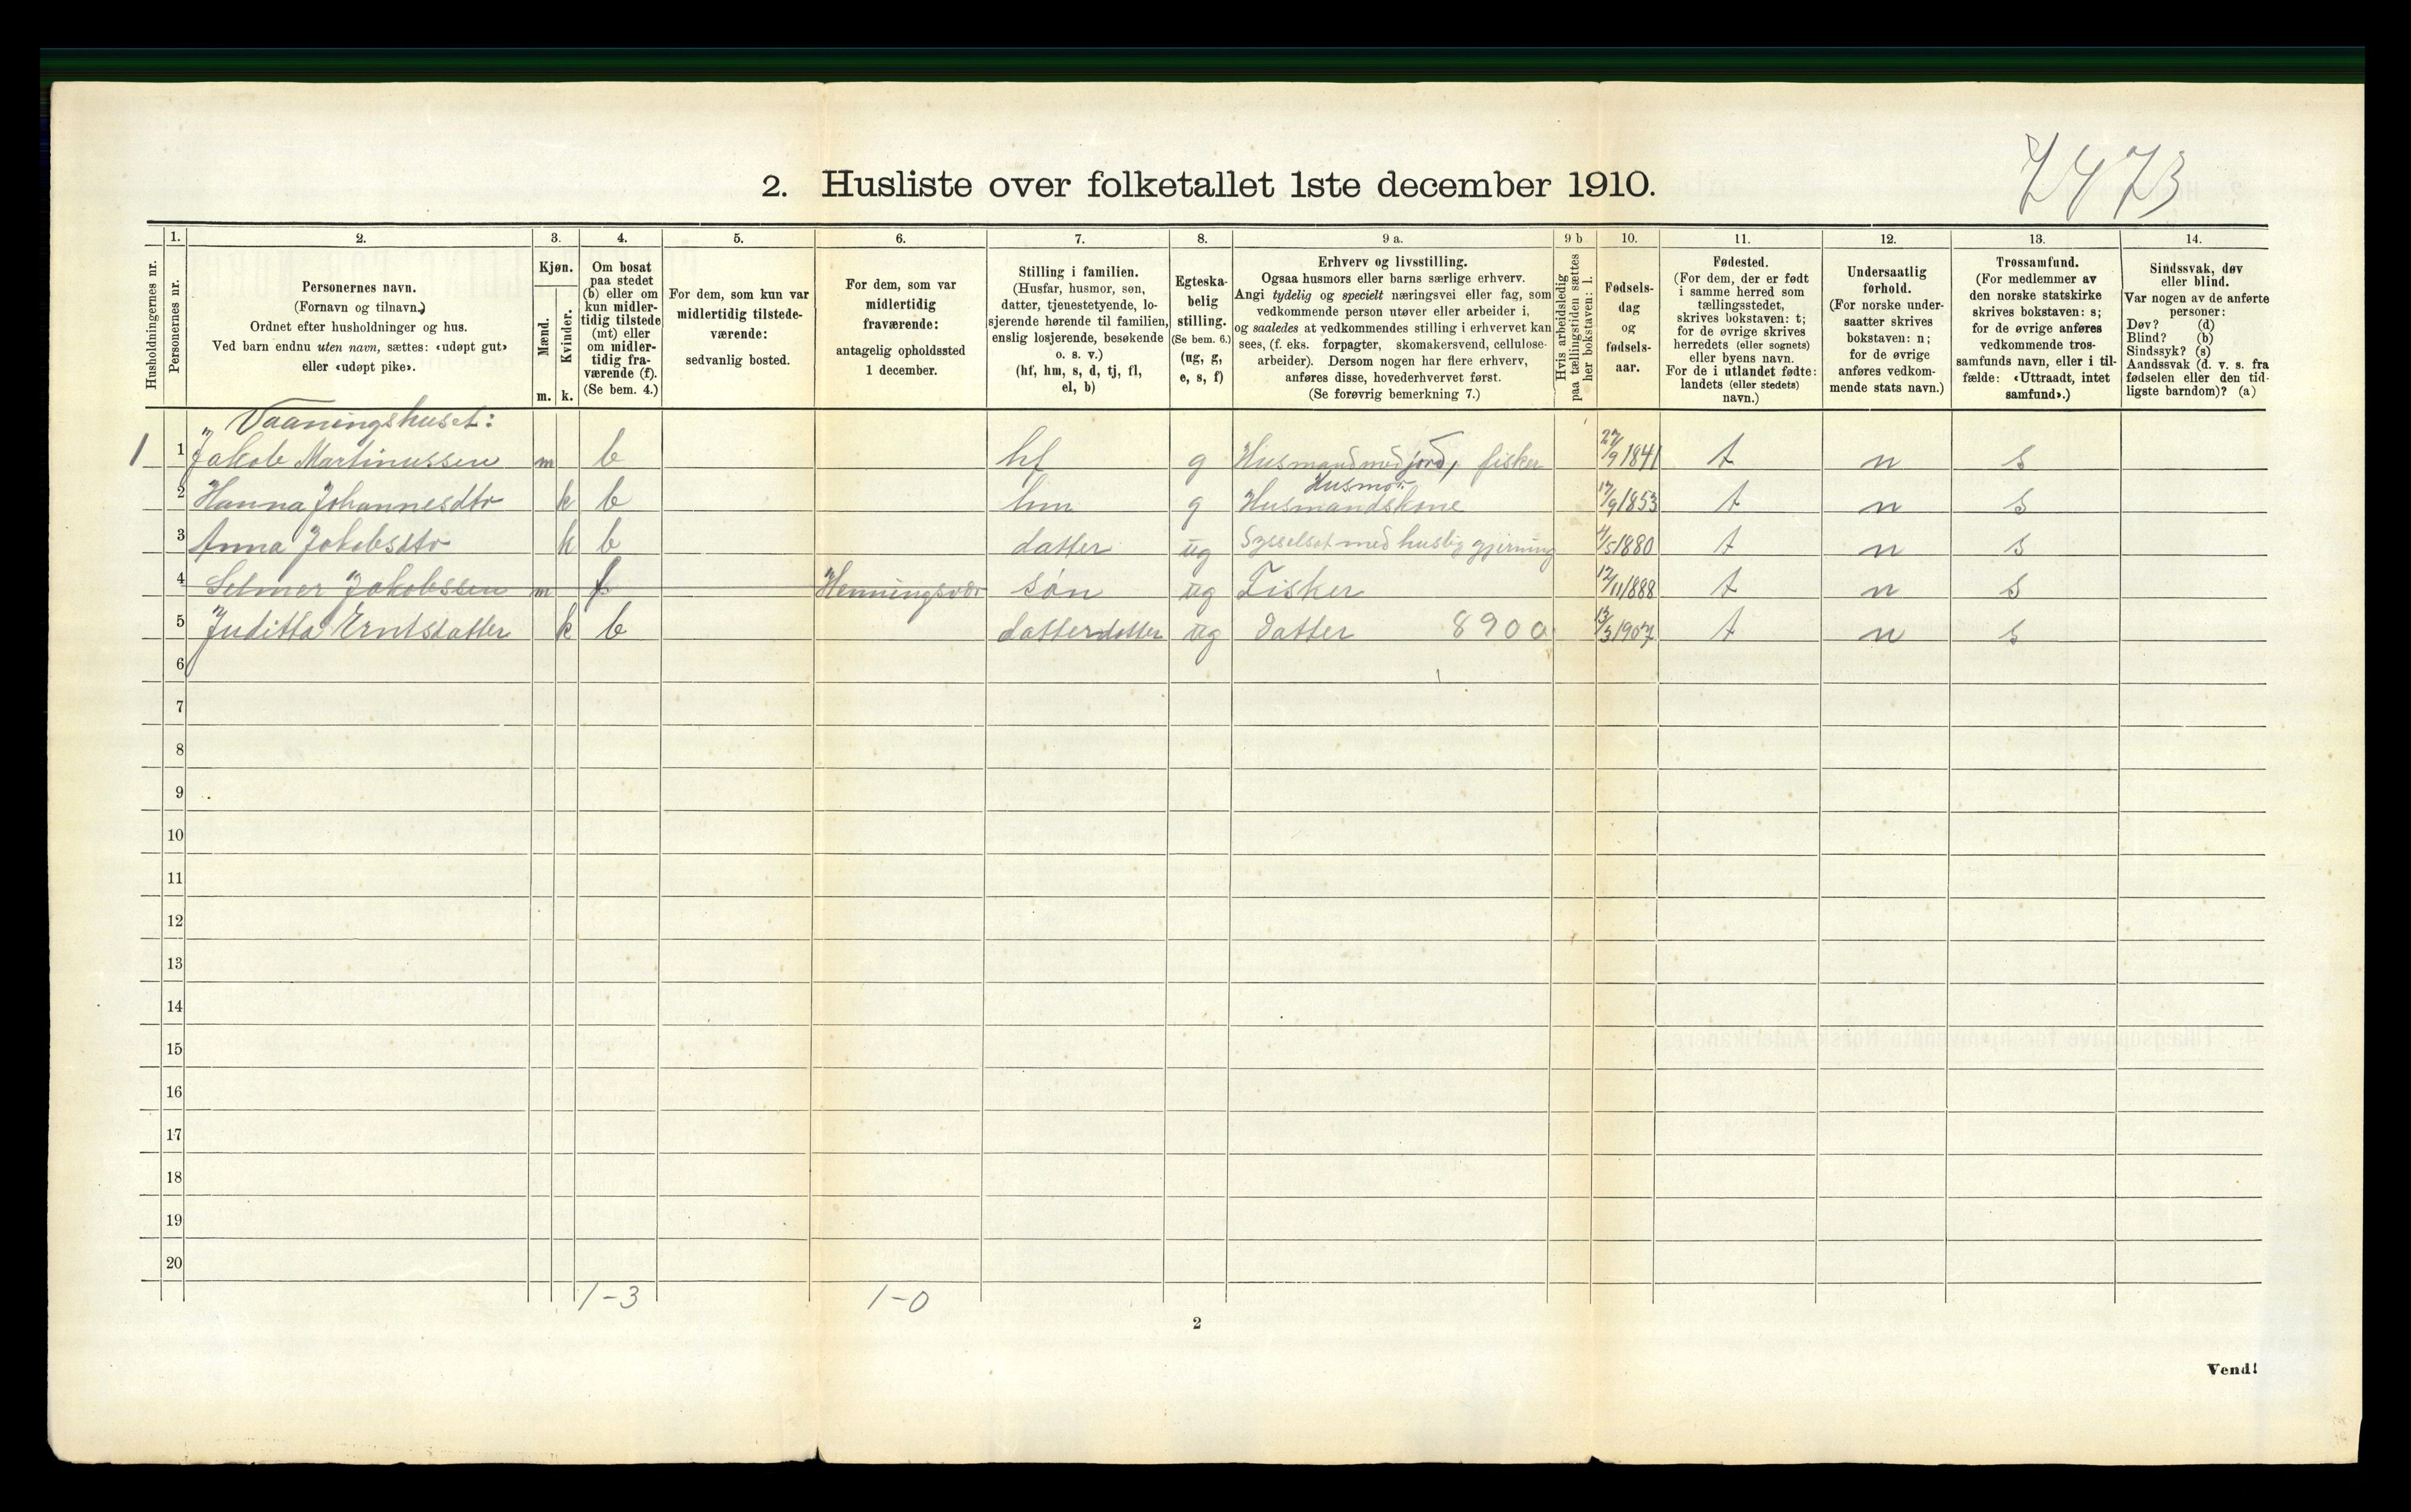 7473
2. Husliste over folketallet 1ste december 1910.
Husholdningernes nr.
1. Personernes nr.
2. Personernes navn.
(Fornavn og tilnavn.)
Ordnet efter husholdninger og hus.
Ved barn endnu uten navn, sættes: «udøpt gut»
eller «udøpt pike».
3. Kjøn.
Mænd. m.
Kvinder. k.
4. Om bosat
paa stedet
(b) eller om
kun midler-
tidig tilstede
(mt) eller
om midler-
tidig fra-
værende (f).
(Se bem. 4.)
5. For dem, som kun var
midlertidig tilstede-
værende:
sedvanlig bosted.
6. For dem, som var
midlertidig
fraværende:
antagelig opholdssted
1 december.
7. Stilling i familien.
(Husfar, husmor, søn,
datter, tjenestetyende, lo-
sjerende hørende til familien,
enslig losjerende, besøkende
o. s. v.)
(hf, hm, s, d, tj, fl,
el, b)
8. Egteska-
belig
stilling.
(Se bem. 6.)
(ug, g,
e, s, f)
9 a. Erhverv og livsstilling.
Ogsaa husmors eller barns særlige erhverv.
Angi tydelig og specielt næringsvei eller fag, som
vedkommende person utøver eller arbeider i,
og saaledes at vedkommendes stilling i erhvervet kan
sees, (f. eks. forpagter, skomakersvend, cellulose-
arbeider). Dersom nogen har flere erhverv,
anføres disse, hovederhvervet først.
(Se forøvrig bemerkning 7.)
9 b Hvis arbeidsledig
paa tællingstiden sættes
her bokstaven: l.
10. Fødsels-
dag
og
fødsels-
aar.
11. Fødested.
(For dem, der er født
i samme herred som
tællingsstedet,
skrives bokstaven: t;
for de øvrige skrives
herredets (eller sognets)
eller byens navn.
For de i utlandet fødte:
landets (eller stedets)
navn.)
12. Undersaatlig
forhold.
(For norske under-
saatter skrives
bokstaven: n;
for de øvrige
anføres vedkom-
mende stats navn.)
13. Trossamfund.
(For medlemmer av
den norske statskirke
skrives bokstaven: s;
for de øvrige anføres
vedkommende tros-
samfunds navn, eller i til-
fælde: «Uttraadt, intet
samfund».)
14. Sindssvak, døv
eller blind.
Var nogen av de anførte
personer:
Døv? (d)
Blind? (b)
Sindssyk? (s)
Aandssvak (d. v. s. fra
fødselen eller den tid-
ligste barndom)? (a)
Vaaningshuset:
1 1 Jakob Martinussen m b hf g Husmand med jord, fisker 27/9 1841 t n s
Husmor
2 Hanna Johannesdtr k b hm g Husmandskone 17/9 1853 t n s
3 Anna Jakobsdtr k b datter ug Sysselsat med huslig gjerning 4/5 1880 t n s
4 Selmer Jakobssen m f Henningsvær søn ug Fisker 12/11 1888 t n s
5 Juditta Erntsdatter k b datterdatter ug datter 8900 13/3 1907 t n s
6
7
8
9
10
11
12
13
14
15
16
17
18
19
20
1-3 1-0
2
Vend!